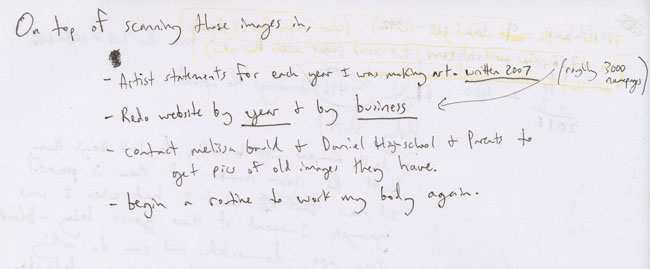 On top of scanning those images in,
- Artist statements for each year I was making art. written 2007 (roughly 3000
- Redo website by year & by business
- contact melissa & Daniel Highschool & Parents to
get pics of old images they have.
- begin a routine to work my body again.